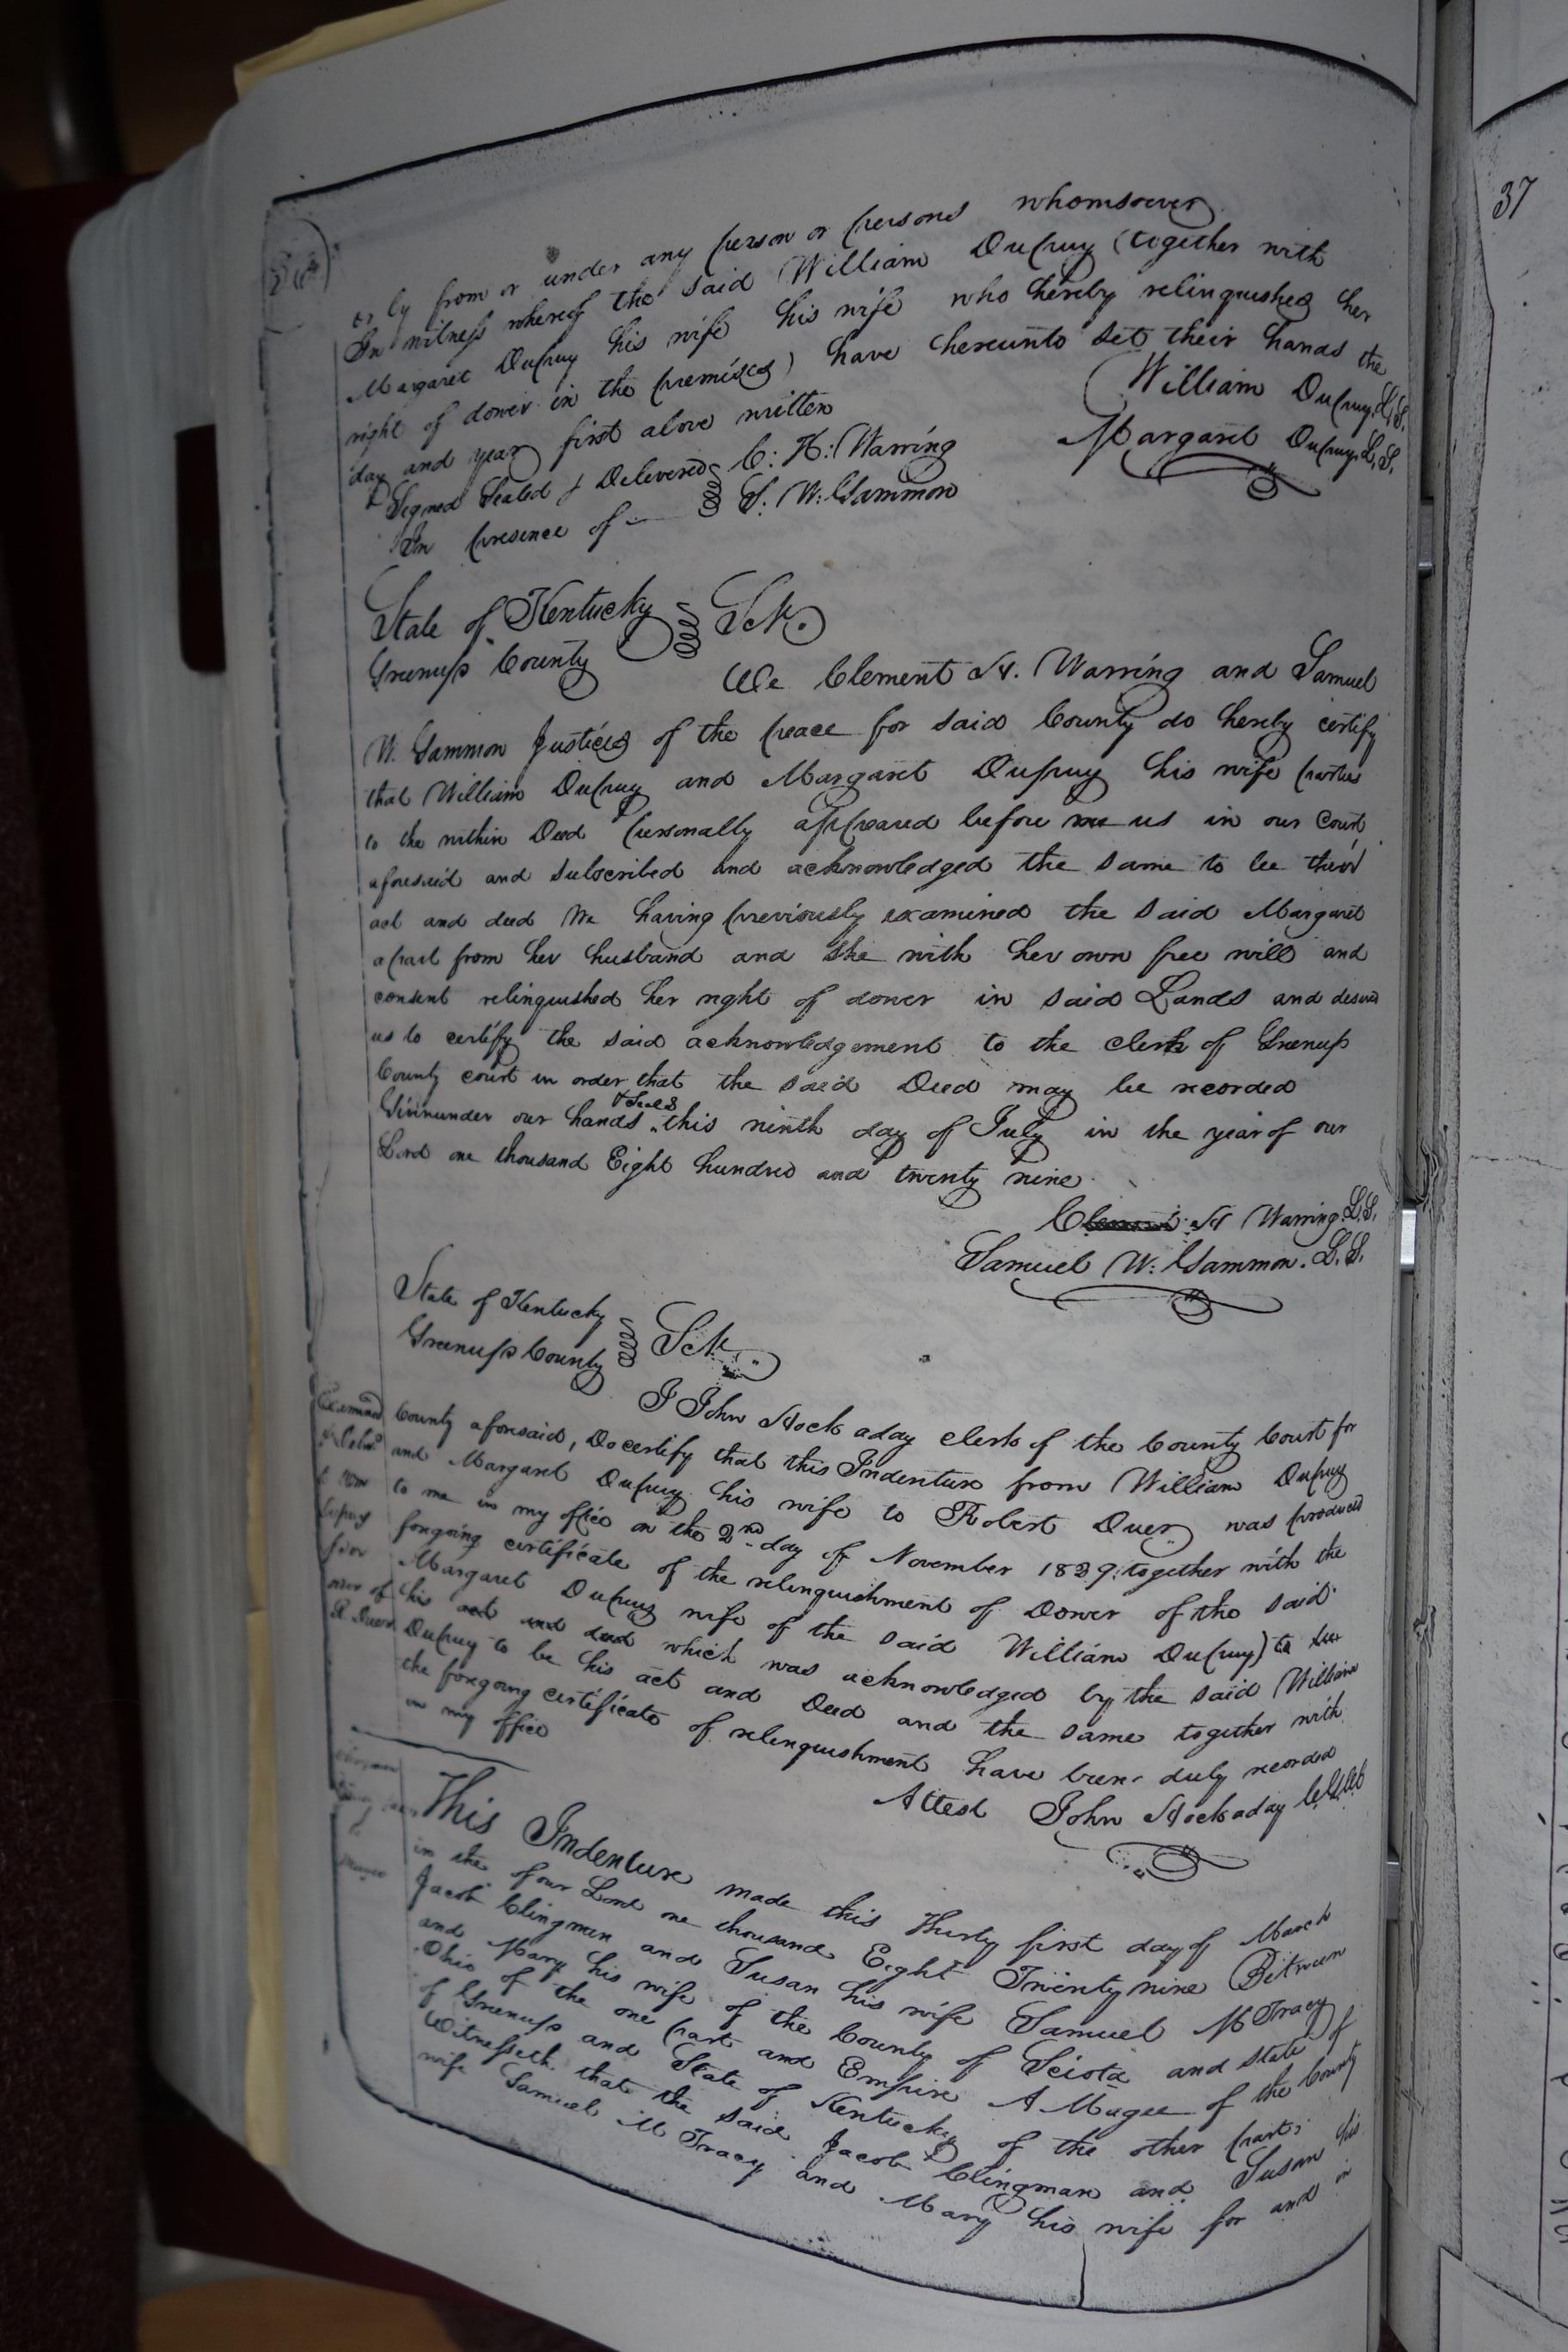 or by from or under any person or persons whomsoever
In witness whereof the said William Dupuy (together with
Margaret Dupuy his wife his wife who hereby relinquishes her
right of dower in the premises) have hereunto set their hands the
day and year first above written
William Dupuy. L.S.
Signed Sealed & Delivered C. H. Warring
Margaret Dupuy. L.S.
In presence of — S. W. Gammon
State of Kentucky
Greenup County Sct.
We Clement H. Warring and Samuel
W. Gammon Justices of the peace for said County do hereby certify
that William Dupuy and Margaret Dupuy his wife parties
to the within Deed personally appeared before me us in our Court
aforesaid and subscribed and acknowledged the same to be their
act and deed We having previously examined the said Margaret
apart from her husband and she with her own free will and
consent relinquished her right of dower in said Lands and desires
us to certify the said acknowledgement to the clerk of Greenup
County court in order that the said Deed may be recorded
Given under our hands & Seals this ninth day of July in the year of our
Lord one thousand Eight hundred and twenty nine
H Warring L.S.
Samuel W. Gammon. L.S.
State of Kentucky
Greenup County Sct.
I John Hockaday clerk of the County Court for
County aforesaid, Do certify that this Indenture from William Dupuy
and Margaret Dupuy his wife to Robert Duer was produced
to me in my office on the 2nd day of November 1829 together with the
forgoing certificate of the relinquishment of Dower of the said
Margaret Dupuy wife of the said William Dupuy) to be
his act and deed which was acknowledged by the said William
Dupuy to be his act and Deed and the same together with
the forgoing certificate of relinquishment have been duly recorded
in my office
Attest John Hockaday
Examined
This Indenture made this Thirty first day of March
in the of our Lord one thousand Eight Twenty nine Between
Jacob Clingman and Susan his wife Samuel M Tracy
and Mary his wife of the County of Sciota and state of
Ohio of the one part and Empire A Magee of the County
of Greenup and State of Kentucky of the other part;
Witnesseth that the said Jacob Clingman and Susan his
wife Samuel M Tracy and Mary his wife for and in
37